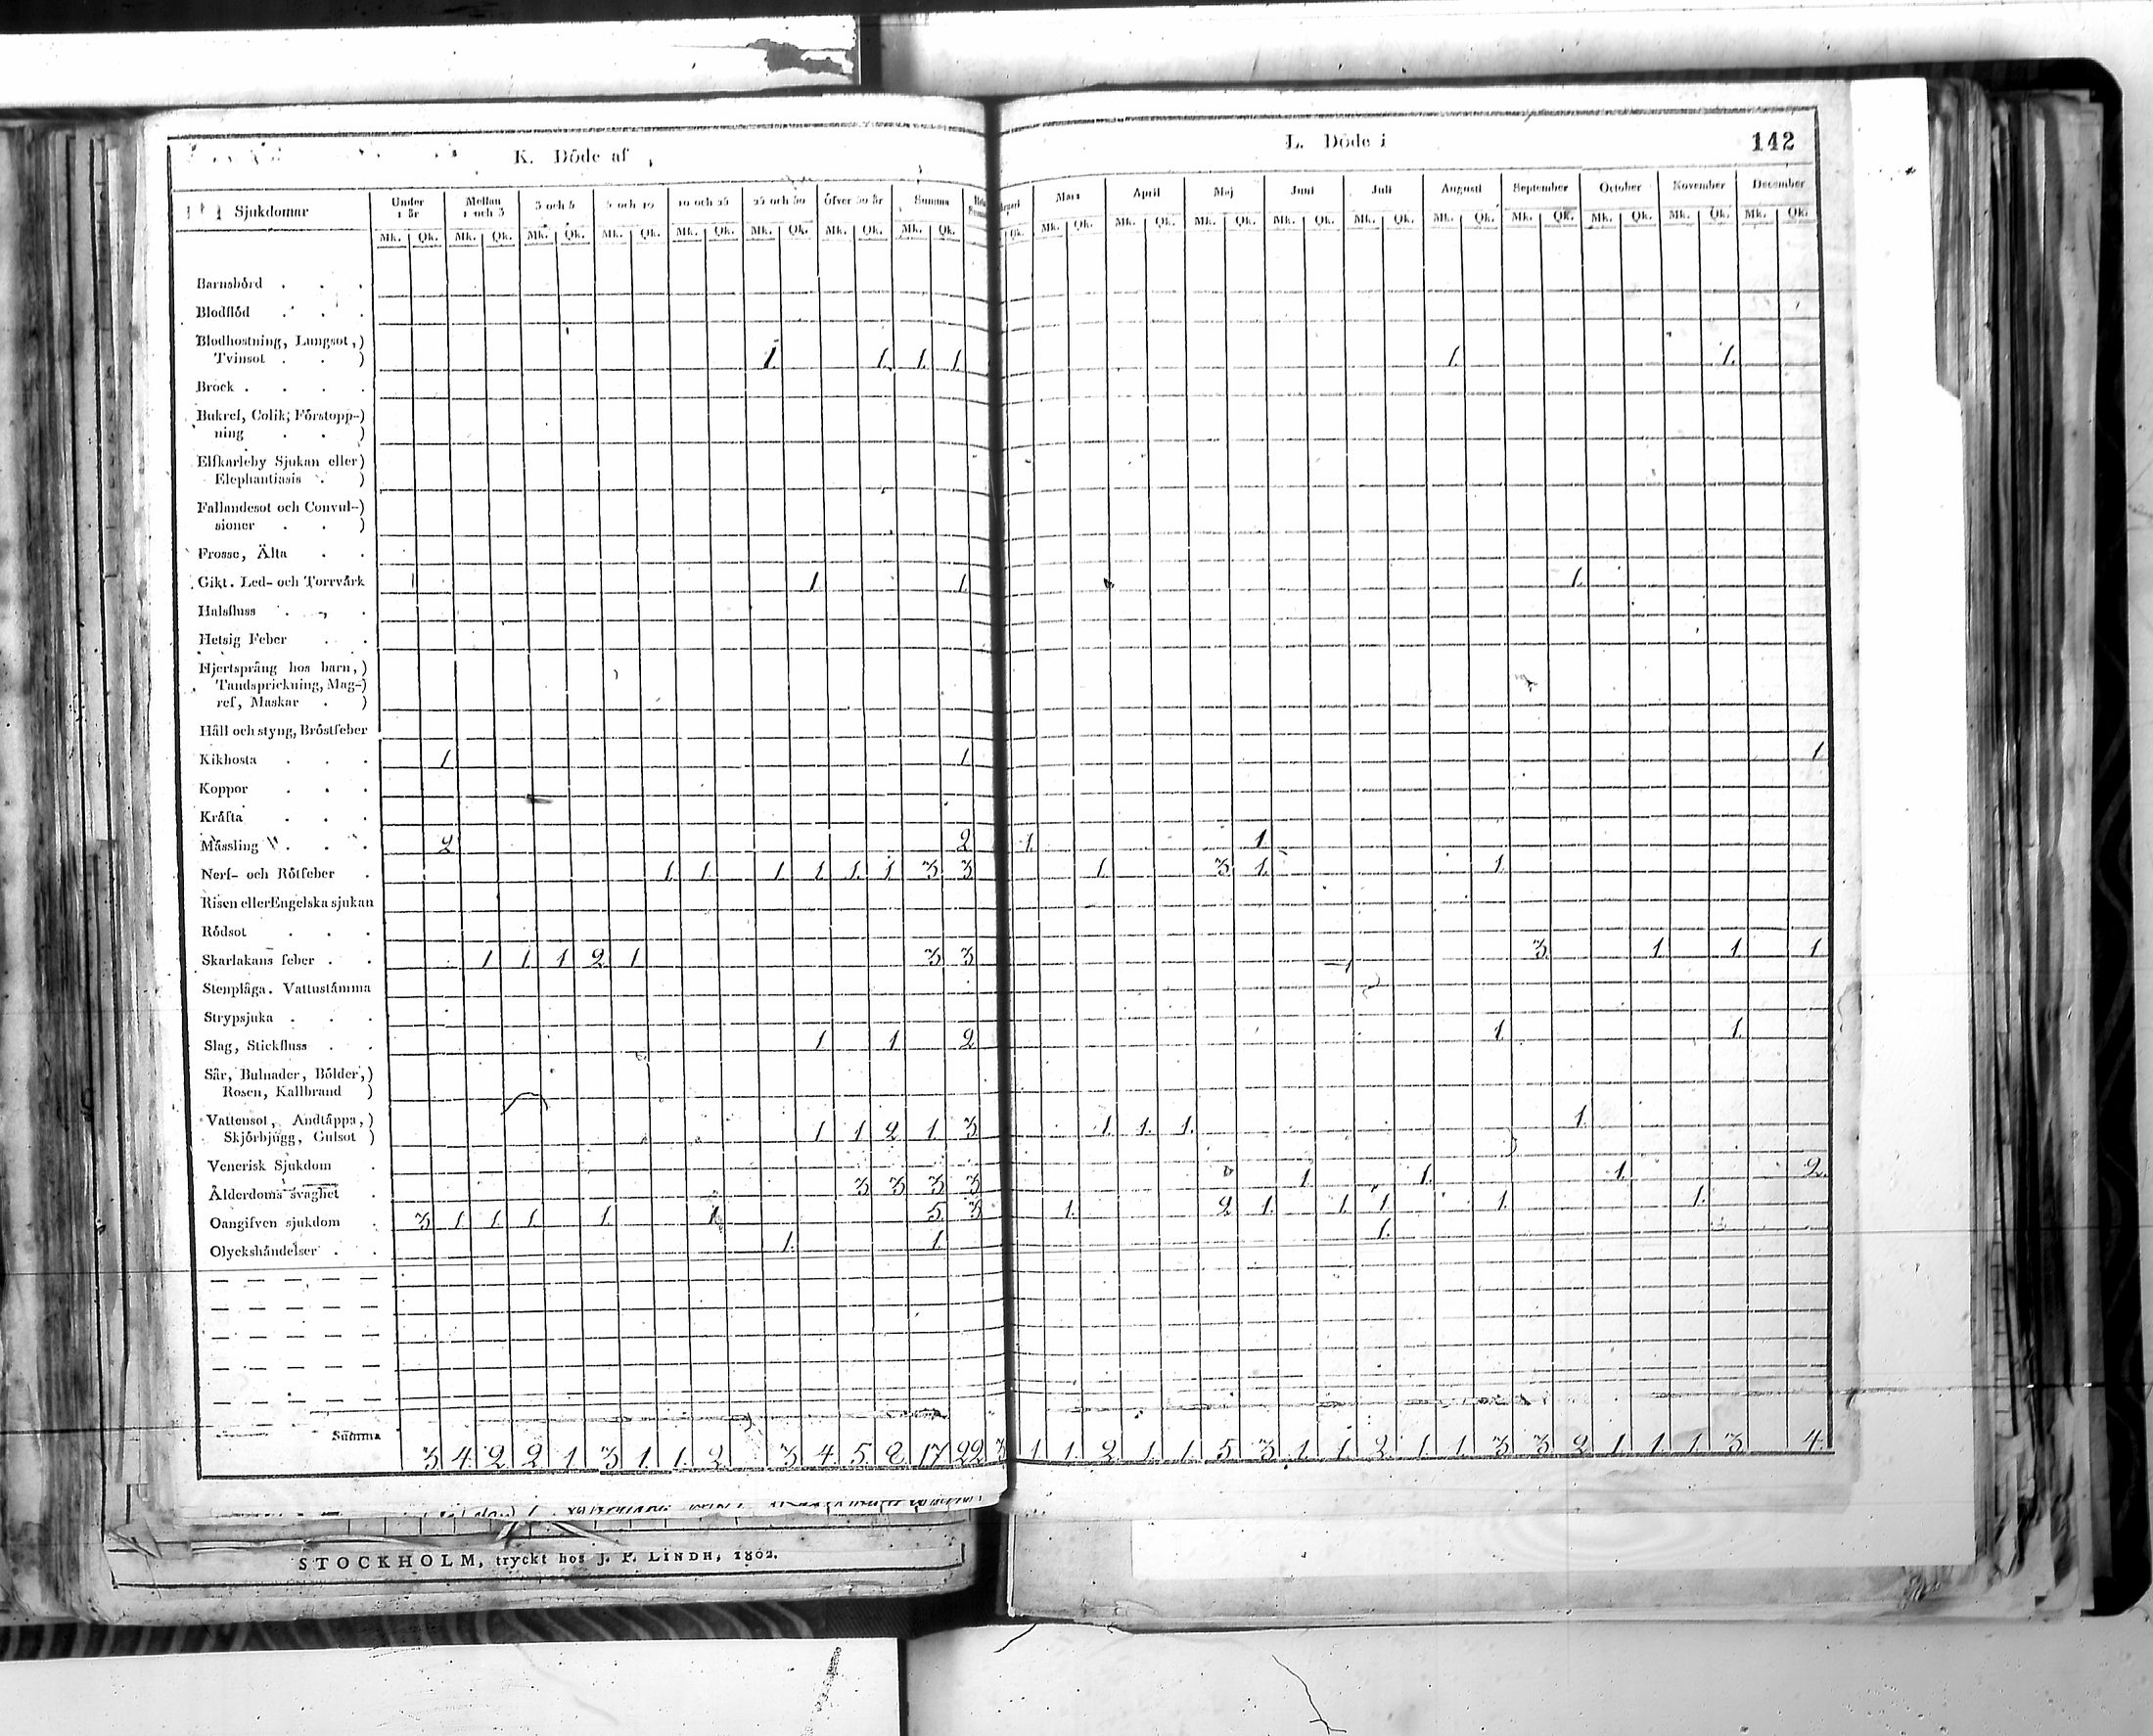 K. Döde af
L. Döde i 142
Sjukdomar Under 1 år Mellan 1 och 3 3 och 5 5 och 10 10 och 25 25 och 50 Öfver 50 år Summa
Mars April Maj Juni Juli Augusti September October November December
Mk. Qk. Mk. Qk. Mk. Qk. Mk. Qk. Mk. Qk. Mk. Qk. Mk. Qk. Mk. Qk.
Qk. Mk. Qk. Mk. Qk. Mk. Qk. Mk. Qk. Mk. Qk. Mk. Qk. Mk. Qk. Mk. Qk. Mk. Qk. Mk. Qk.
Barnsbörd . . .
Blodflöd . . .
Blodhostning, Lungsot,)
Tvinsot . . ) 1. 1. 1. 1. 1. 1.
Bråck . . . .
Bukref, Colik, Förstopp-)
ning . . )
Elfkarleby Sjukan eller)
Elephantiasis . )
Fallandesot och Convul-)
sioner . . )
Frosse, Älta . .
Gikt. Led- och Torrvärk 1 1. 1.
Halsfluss . . .
Hetsig Feber . .
Hjertsprång hos barn,)
Tandsprickning, Mag-)
ref, Maskar . )
Håll och styng, Bröstfeber
Kikhosta . . . 1 1 1
Koppor . . .
Kräfta . . .
Mässling . . . 2 2 1. 1
Nerf- och Rötfeber . 1. 1. 1. 1. 1. 1 3 3 1. 3 1. 1.
Risen eller Engelska sjukan
Rödsot . . .
Skarlakans feber . . 1 1 1 2 1 3 3 3 1 1 1
Stenplåga. Vattustämma
Strypsjuka . . .
Slag, Stickfluss . . 1 1 2 1. 1.
Sår, Bulnader, Bölder,)
Rosen, Kallbrand )
Vattensot, Andtäppa,)
Skjörbjugg, Gulsot ) 1 1 2 1 3 1. 1. 1. 1.
Venerisk Sjukdom .
Ålderdoms svaghet . 3 3 3 3 1. 1. 1. 2.
Oangifven sjukdom . 3 1. 1. 1. 1. 1 5 3 1. 2 1. 1. 1. 1. 1.
Olyckshändelser . . 1. 1. 1.
Summa 3 4 2 2 1 3 1. 1. 2. 3 4. 5. 8 17 22 3 1 1. 2 1. 1. 5 3 1 1 2 1 1 3 3 2 1 1 1. 3 4.
STOCKHOLM, tryckt hos J. P. LINDH, 1802.